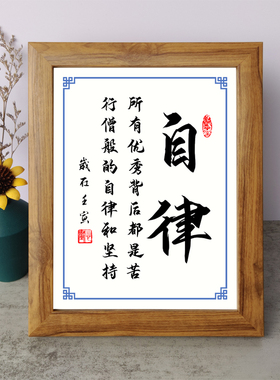 自律
所有优秀背后都是苦
行僧般的自律和坚持
岁在壬寅